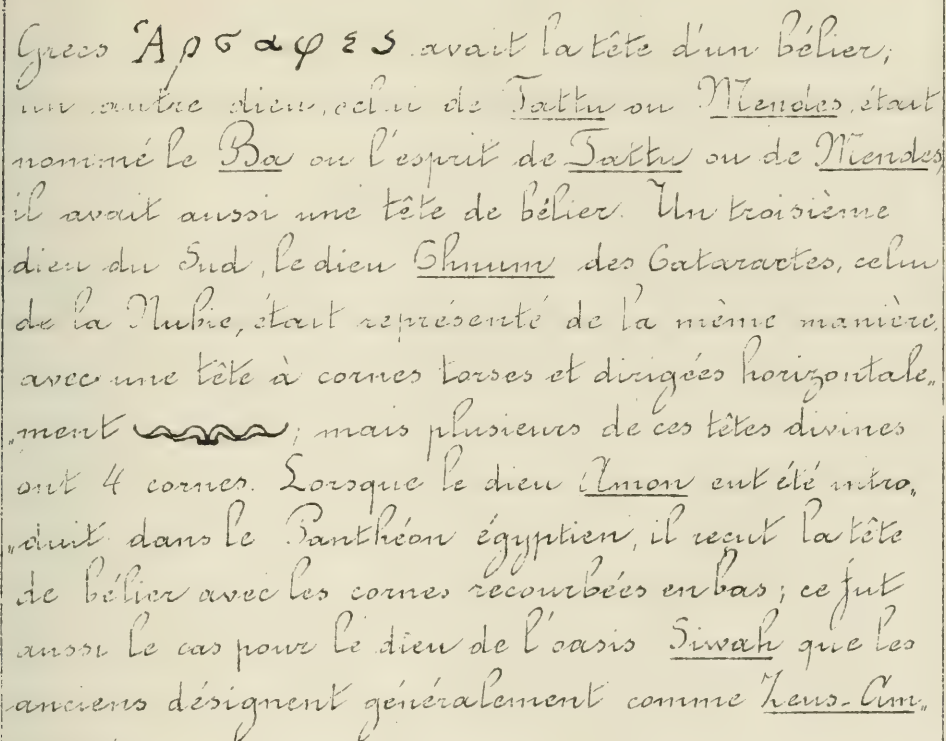 Grecs Ἀρσαφες avait la tête d'un bélier;
un autre dieu, celui de Tattu ou Mendes, était
nommé le Ba ou l'esprit de Tattu ou de Mendes,
il avait aussi une tête de bélier. Un troisième
dieu du Sud, le dieu Chnum des Cataractes, celui
de la Nubie, était représenté de la même manière,
avec une tête à cornes torses et dirigées horizontale„
„ment ; mais plusieurs de ces têtes divines
ont 4 cornes. Lorsque le dieu Amon eut été intro„
„duit dans le Panthéon égyptien, il reçut la tête
de bélier avec les cornes recourbées en bas; ce fut
aussi le cas pour le dieu de l'oasis Siwah que les
anciens désignent généralement comme Zeus-Am„